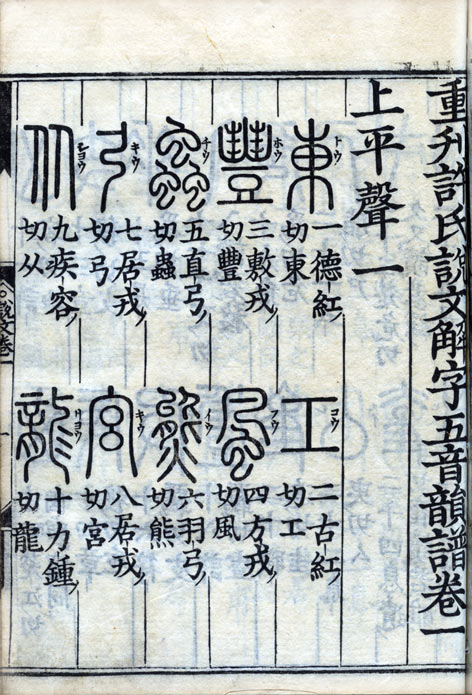 重刋許氏說文解字五音韻譜卷一
上平聲一
東 トウ
一德紅ノ
切東
工 コウ
二古紅ノ
切工
豐 ホウ
三敷戎ノ
切豐
風 フウ
四方戎ノ
切風
蟲 チウ
五直弓ノ
切蟲
熊 イウ
六羽弓ノ
切熊
弓 キウ
七居戎ノ
切弓
宮 キウ
八居戎ノ
切宮
从 シヨウ
九疾容ノ
切从
龍 リヨウ
十力鍾ノ
切龍
說文卷一
一